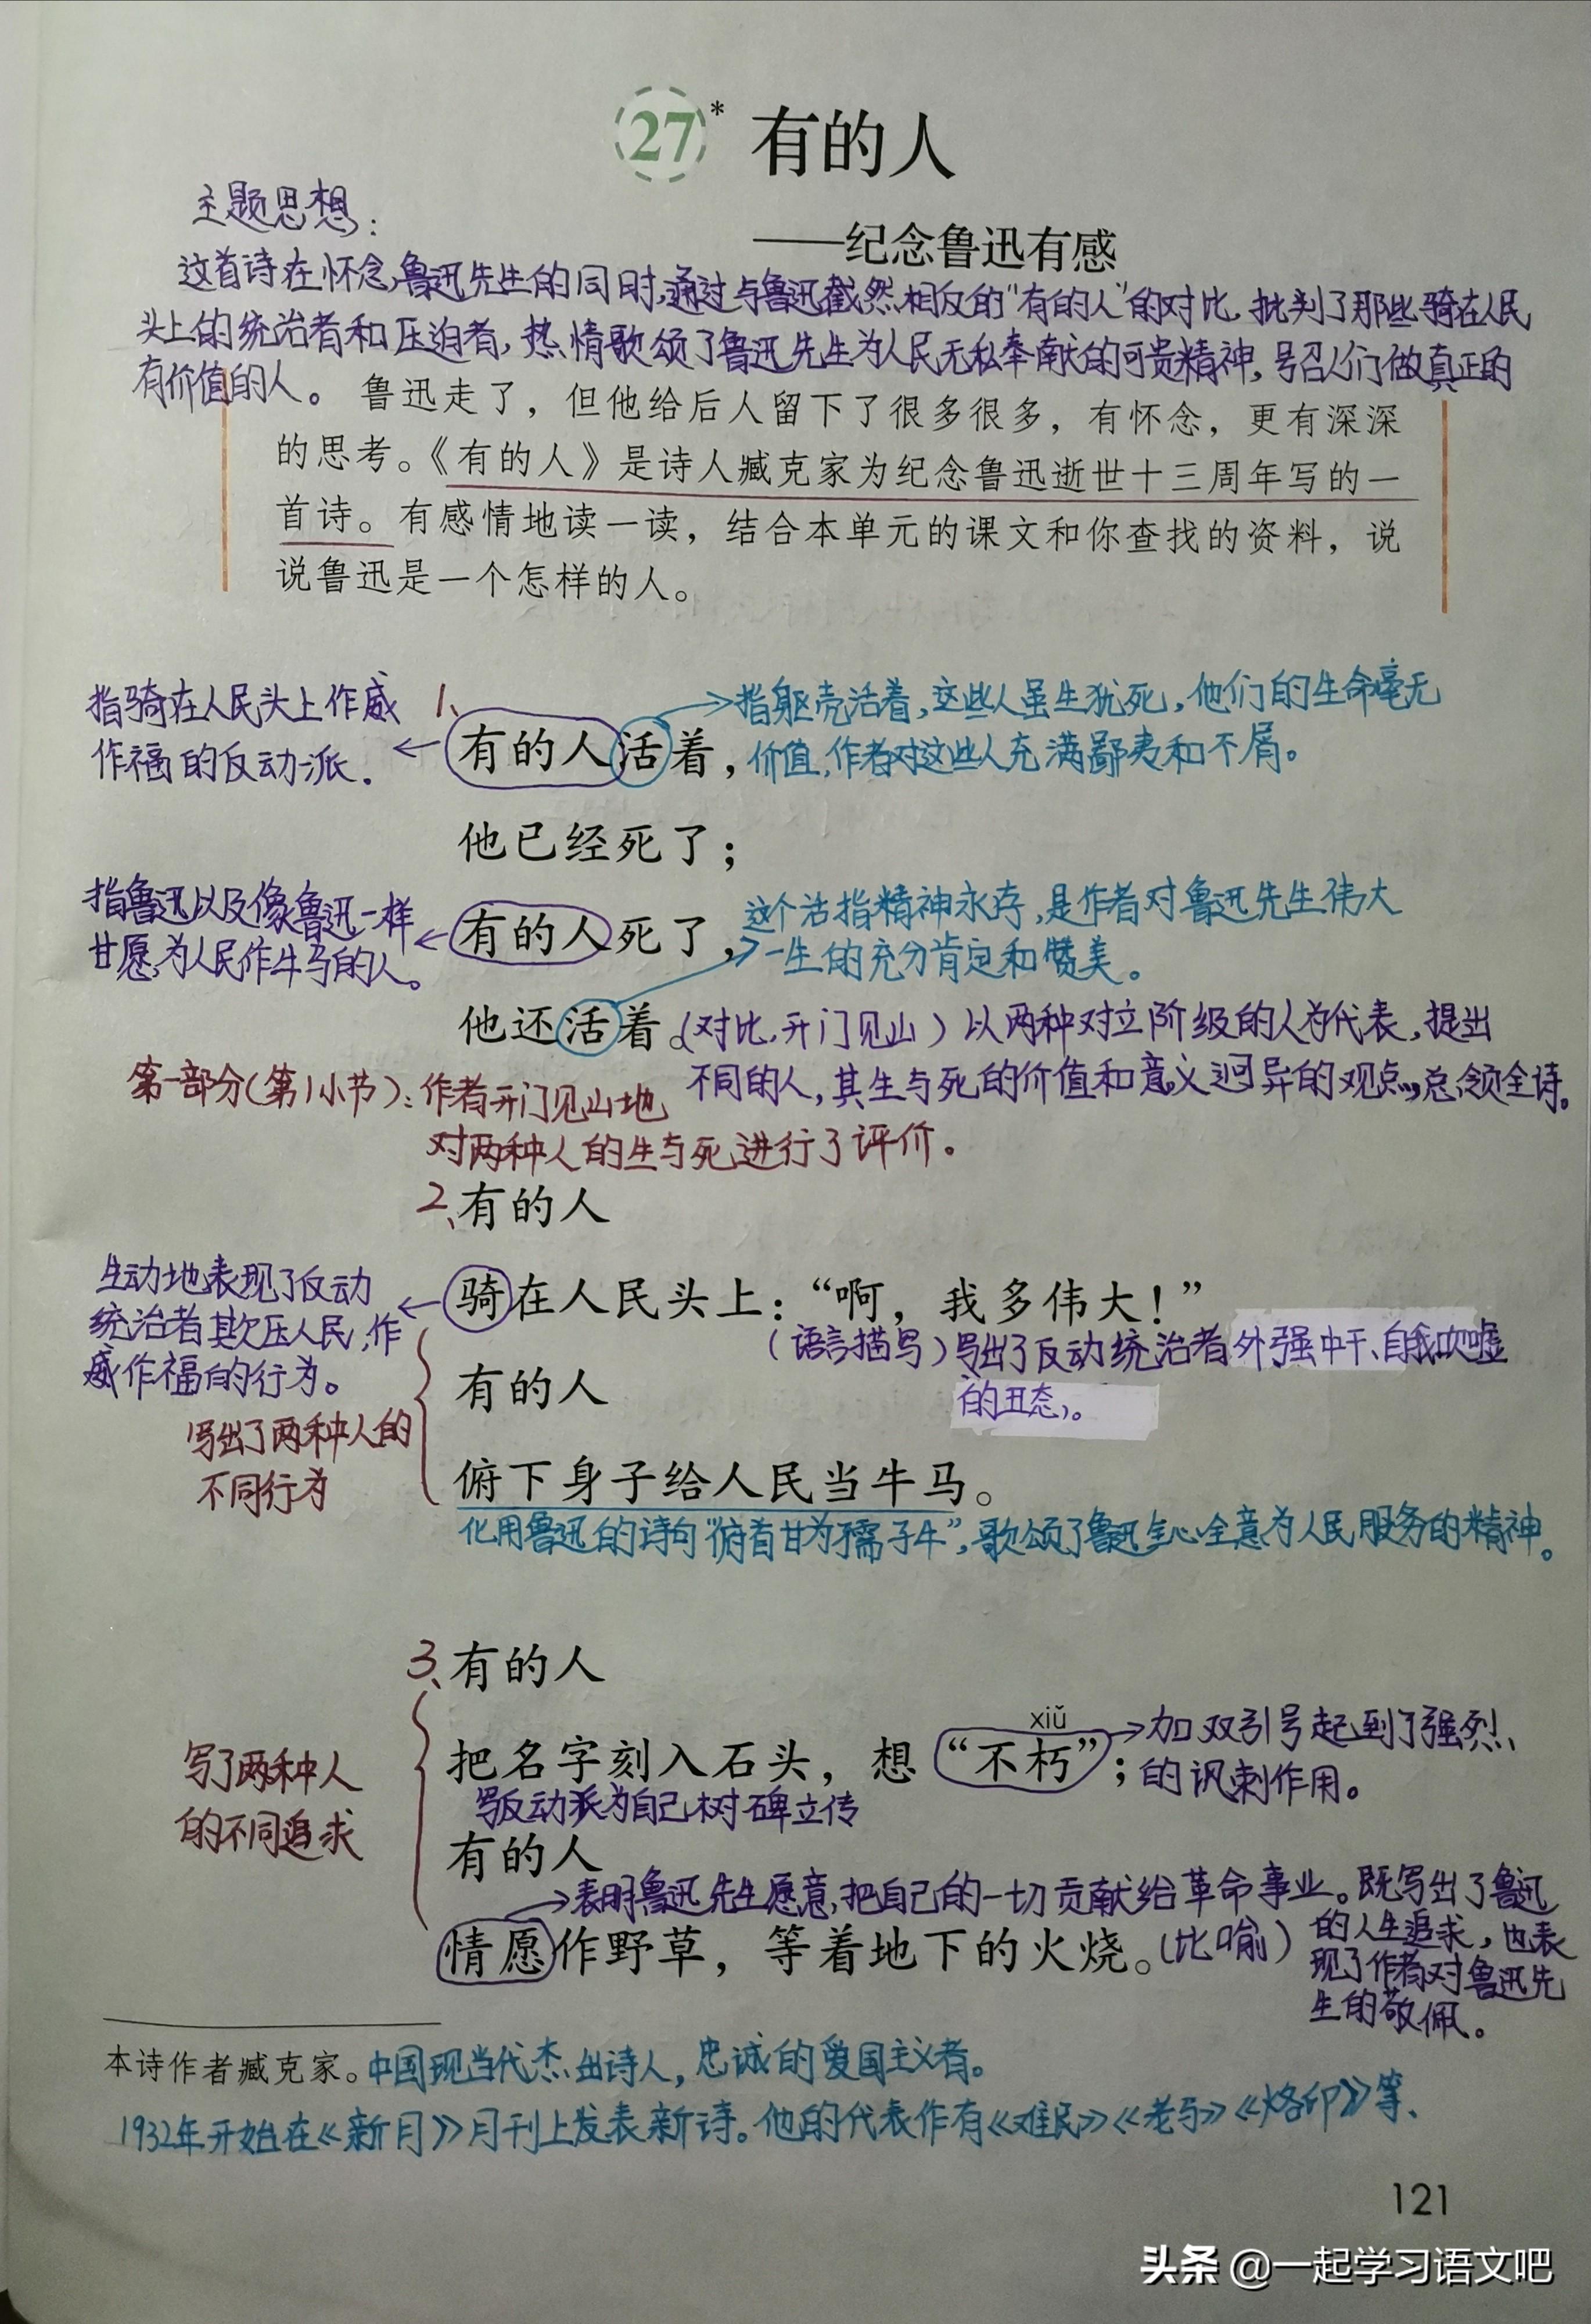 27* 有的人
——纪念鲁迅有感
主题思想：
这首诗在怀念鲁迅先生的同时,通过与鲁迅截然相反的“有的人”的对比,批判了那些骑在人民
头上的统治者和压迫者,热情歌颂了鲁迅先生为人民无私奉献的可贵精神,号召人们做真正的
有价值的人。
鲁迅走了，但他给后人留下了很多很多，有怀念，更有深深
的思考。《有的人》是诗人臧克家为纪念鲁迅逝世十三周年写的一
首诗。有感情地读一读，结合本单元的课文和你查找的资料，说
说鲁迅是一个怎样的人。
指骑在人民头上作威
作福的反动派.
1、有的人活着，
指躯壳活着,这些人虽生犹死,他们的生命毫无
价值,作者对这些人充满鄙夷和不屑。
他已经死了；
指鲁迅以及像鲁迅一样
甘愿为人民作牛马的人。
有的人死了，
这个活指精神永存,是作者对鲁迅先生伟大
一生的充分肯定和赞美。
他还活着。(对比,开门见山)以两种对立阶级的人为代表,提出
不同的人,其生与死的价值和意义迥异的观点,总领全诗。
第一部分(第1小节):作者开门见山地
对两种人的生与死进行了评价。
2、有的人
生动地表现了反动
统治者欺压人民,作
威作福的行为。
骑在人民头上：“啊，我多伟大！”
(语言描写)写出了反动统治者外强中干、自我吹嘘
的丑态。
有的人
写出了两种人的
不同行为
俯下身子给人民当牛马。
化用鲁迅的诗句“俯首甘为孺子牛”,歌颂了鲁迅全心全意为人民服务的精神。
3、有的人
xiǔ
把名字刻入石头，想“不朽”；
加双引号起到了强烈
的讽刺作用。
写了两种人
的不同追求
写反动派为自己树碑立传
有的人
表明鲁迅先生愿意把自己的一切贡献给革命事业。既写出了鲁迅
的人生追求,也表
现了作者对鲁迅先
生的敬佩。
情愿作野草，等着地下的火烧。(比喻)
本诗作者臧克家。中国现当代杰出诗人,忠诚的爱国主义者。
1932年开始在《新月》月刊上发表新诗。他的代表作有《难民》《老马》《烙印》等、
121
头条 @一起学习语文吧